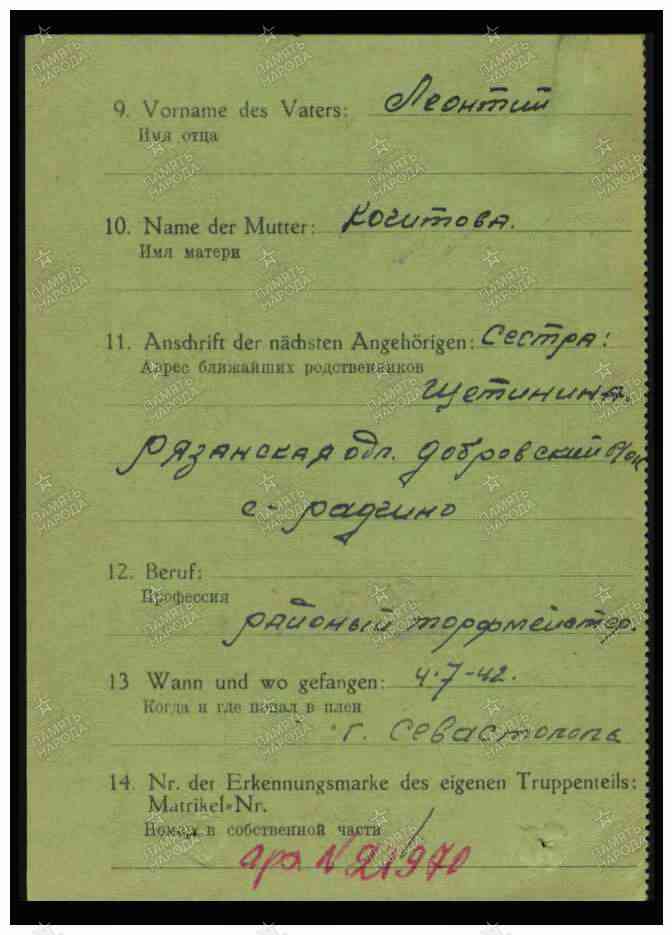 9. Vorname des Vaters: Леонтий
Имя отца
10. Name der Mutter: Кочитова.
Имя матери
11. Anschrift der nächsten Angehörigen: Сестра:
Адрес ближайших родственников
Щетинина.
Рязанская обл. Добровский
с-
12. Beruf:
Профессия
районый торфмейстер.
13 Wann und wo gefangen: 4.7-42.
Когда и где попал в плен
г. Севастополь
14. Nr. der Erkennungsmarke des eigenen Truppenteils:
Matrikel-Nr.
Номер в собственной части
арх N 21970
ПАМЯТЬ
НАРОДА